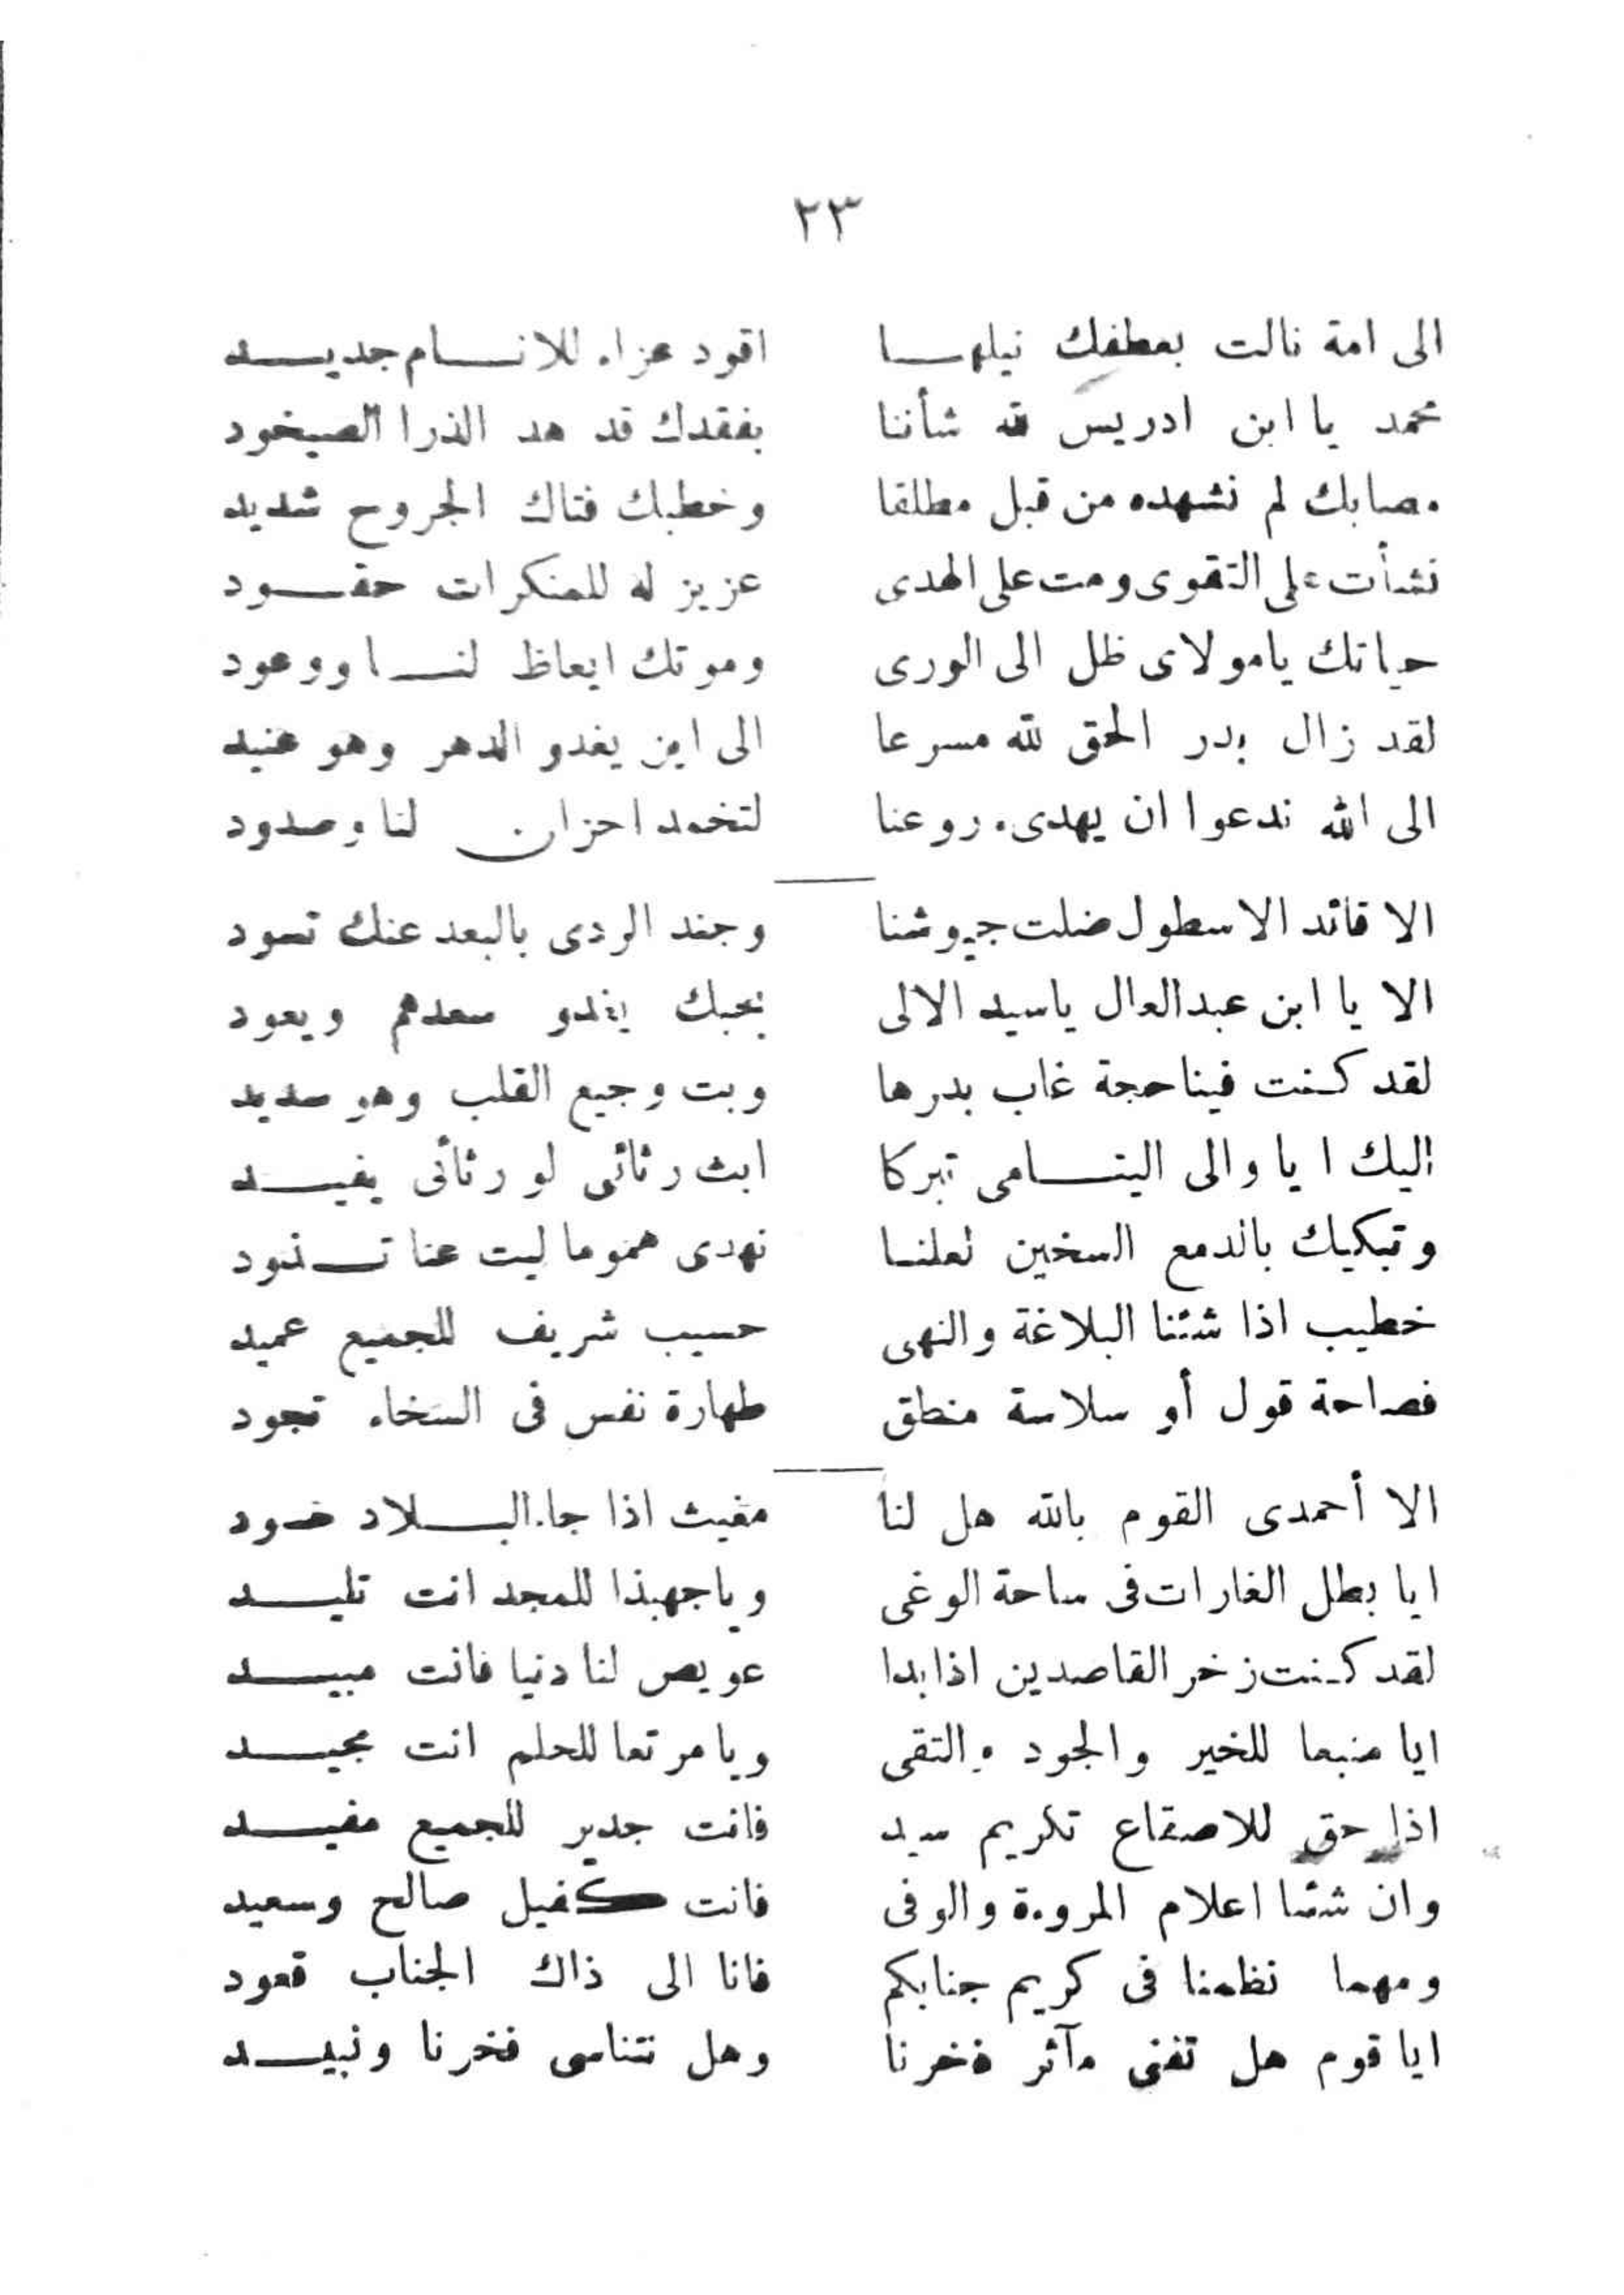 ٢٣
الى امة نالت بعطفك نيلهـا اقود عزاء للانـام جديـد
محمد يا ابن ادريس لله شأننا بفقدك قد هد الذرا الصيخود
مصابك لم نشهده من قبل مطلقا وخطبك فتاك الجروح شديد
نشأت على التقوى ومت على الهدى عزيز له للمنكرات حقـود
حياتك يامولاى ظل الى الورى وموتك ايعاظ لنـا ووعود
لقد زال بدر الحق لله مسرعا الى اين يغدو الدهر وهو عنيد
الى الله ندعوا ان يهدىء روعنا لتخمد احزان لنا وصدود
الا قائد الاسطول ضلت جيوشنا وجند الردى بالبعد عنك تسود
الا يا ابن عبدالعال ياسيد الالى بحبك يغدو سعدهم ويعود
لقد كنت فينا حجة غاب بدرها وبت وجيع القلب وهو سديد
اليك ايا والى اليتـامى تبركا ابث رثائى لو رثائى يفيـد
وتبكيك بالدمع السخين لعلنـا نهدى هموما ليت عنا تـذود
خطيب اذا شئنا البلاغة والنهى حسيب شريف للجميع عميد
فصاحة قول أو سلاسة منطق طهارة نفس فى السخاء تجود
الا أحمدى القوم بالله هل لنا مغيث اذا جاء البـلاد خمود
ايا بطل الغارات فى ساحة الوغى وياجهبذا للمجد انت تليـد
لقد كنت زخر القاصدين اذا بدا عويص لنا دنيا فانت مبيـد
ايا منبعا للخير والجود والتقى ويا مرتعا للحلم انت مجيـد
اذا حق للاصقاع تكريم سيد فانت جدير للجميع مفيـد
وان شئنا اعلام المروءة والوفى فانت كفيل صالح وسعيد
ومهما نظمنا فى كريم جنابكم فانا الى ذاك الجناب قعود
ايا قوم هل تفنى مآثر فخرنا وهل نتناسى فخرنا ونبيـد